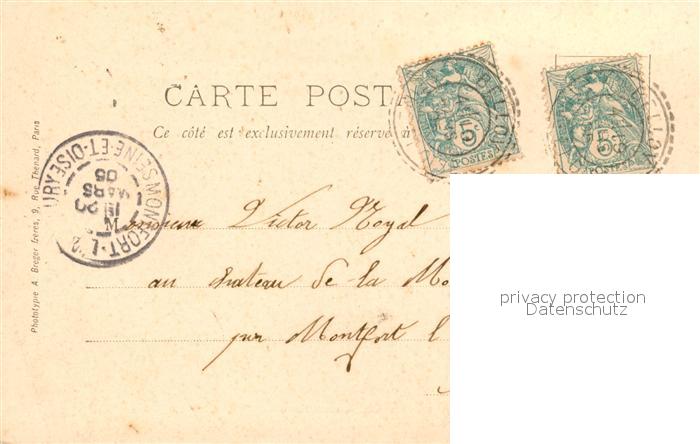 CARTE POSTA
Ce côté est exclusivement réservé à
BILLOM
5
POSTES
5
POSTES
MONTFORT-L'
SEINE-ET-OISE
20
MARS
05
Phototypie A. Breger frères, 9, Rue Thénard, Paris
Monsieur Victor Noyal
au chateau de la Mo
par Montfort l
privacy protection
Datenschutz